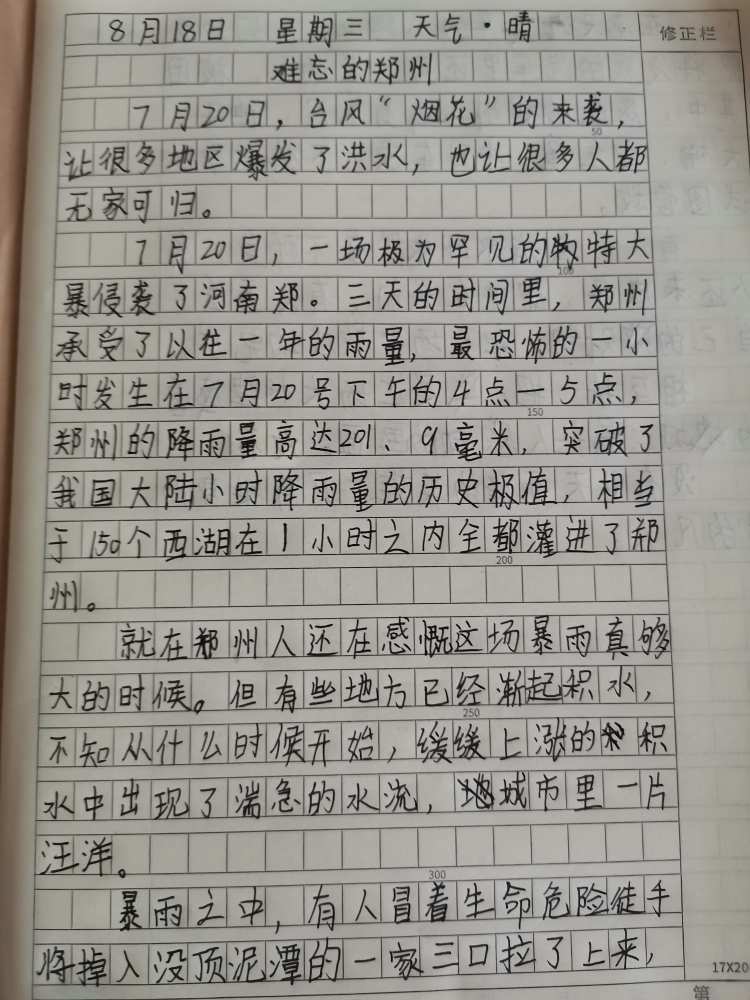 8月18日 星期三 天气·晴 修正栏
难忘的郑州
7月20日，台风“烟花”的来袭，
50
让很多地区爆发了洪水，也让很多人都
无家可归。
7月20日，一场极为罕见的特大
100
暴侵袭了河南郑。三天的时间里，郑州
承受了以往一年的雨量，最恐怖的一小
时发生在7月20号下午的4点—5点，
150
郑州的降雨量高达201、9毫米，突破了
我国大陆小时降雨量的历史极值，相当
于150个西湖在1小时之内全都灌进了郑
200
州。
就在郑州人还在感慨这场暴雨真够
大的时候。但有些地方已经渐起积水，
250
不知从什么时候开始，缓缓上涨的积
水中出现了湍急的水流，城市里一片
汪洋。
300
暴雨之中，有人冒着生命危险徒手
将掉入没顶泥潭的一家三口拉了上来，
17X20
第